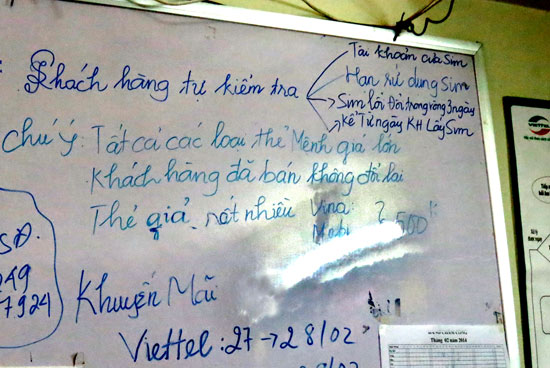 Tài khoản của Sim
Khách hàng tự kiểm tra
Hạn sử dụng Sim
Sim lỗi Đổi trong vòng 3 ngày
Kể Từ ngày KH Lấy Sim
chú ý: Tất cả các loại thẻ Mệnh giá lớn
Khách hàng đã bán không đổi lại
Thẻ giả nát nhiều Vina: ?
Mobi 500k
SĐ.
249
7924
Khuyến Mãi
Viettel: 27 → 28/02
VIETTEL
BẢNG CHẤM CÔNG
Tháng 02 năm 2014